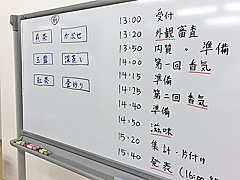 煎茶
かぶせ
玉露
深蒸し
紅茶
釜炒り
13:00 受付
13:20 外観審査
13:50 内質 〃 準備
14:00 第一回香気
14:15 準備
14:25 第二回香気
14:40 準備
14:50 滋味
15:20 集計・片付け
15:40 発表